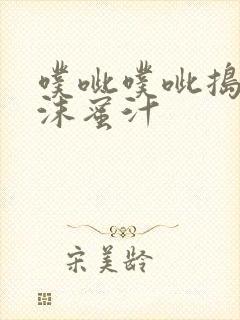 噗呲噗呲捣
沫蜜汁
宋美龄